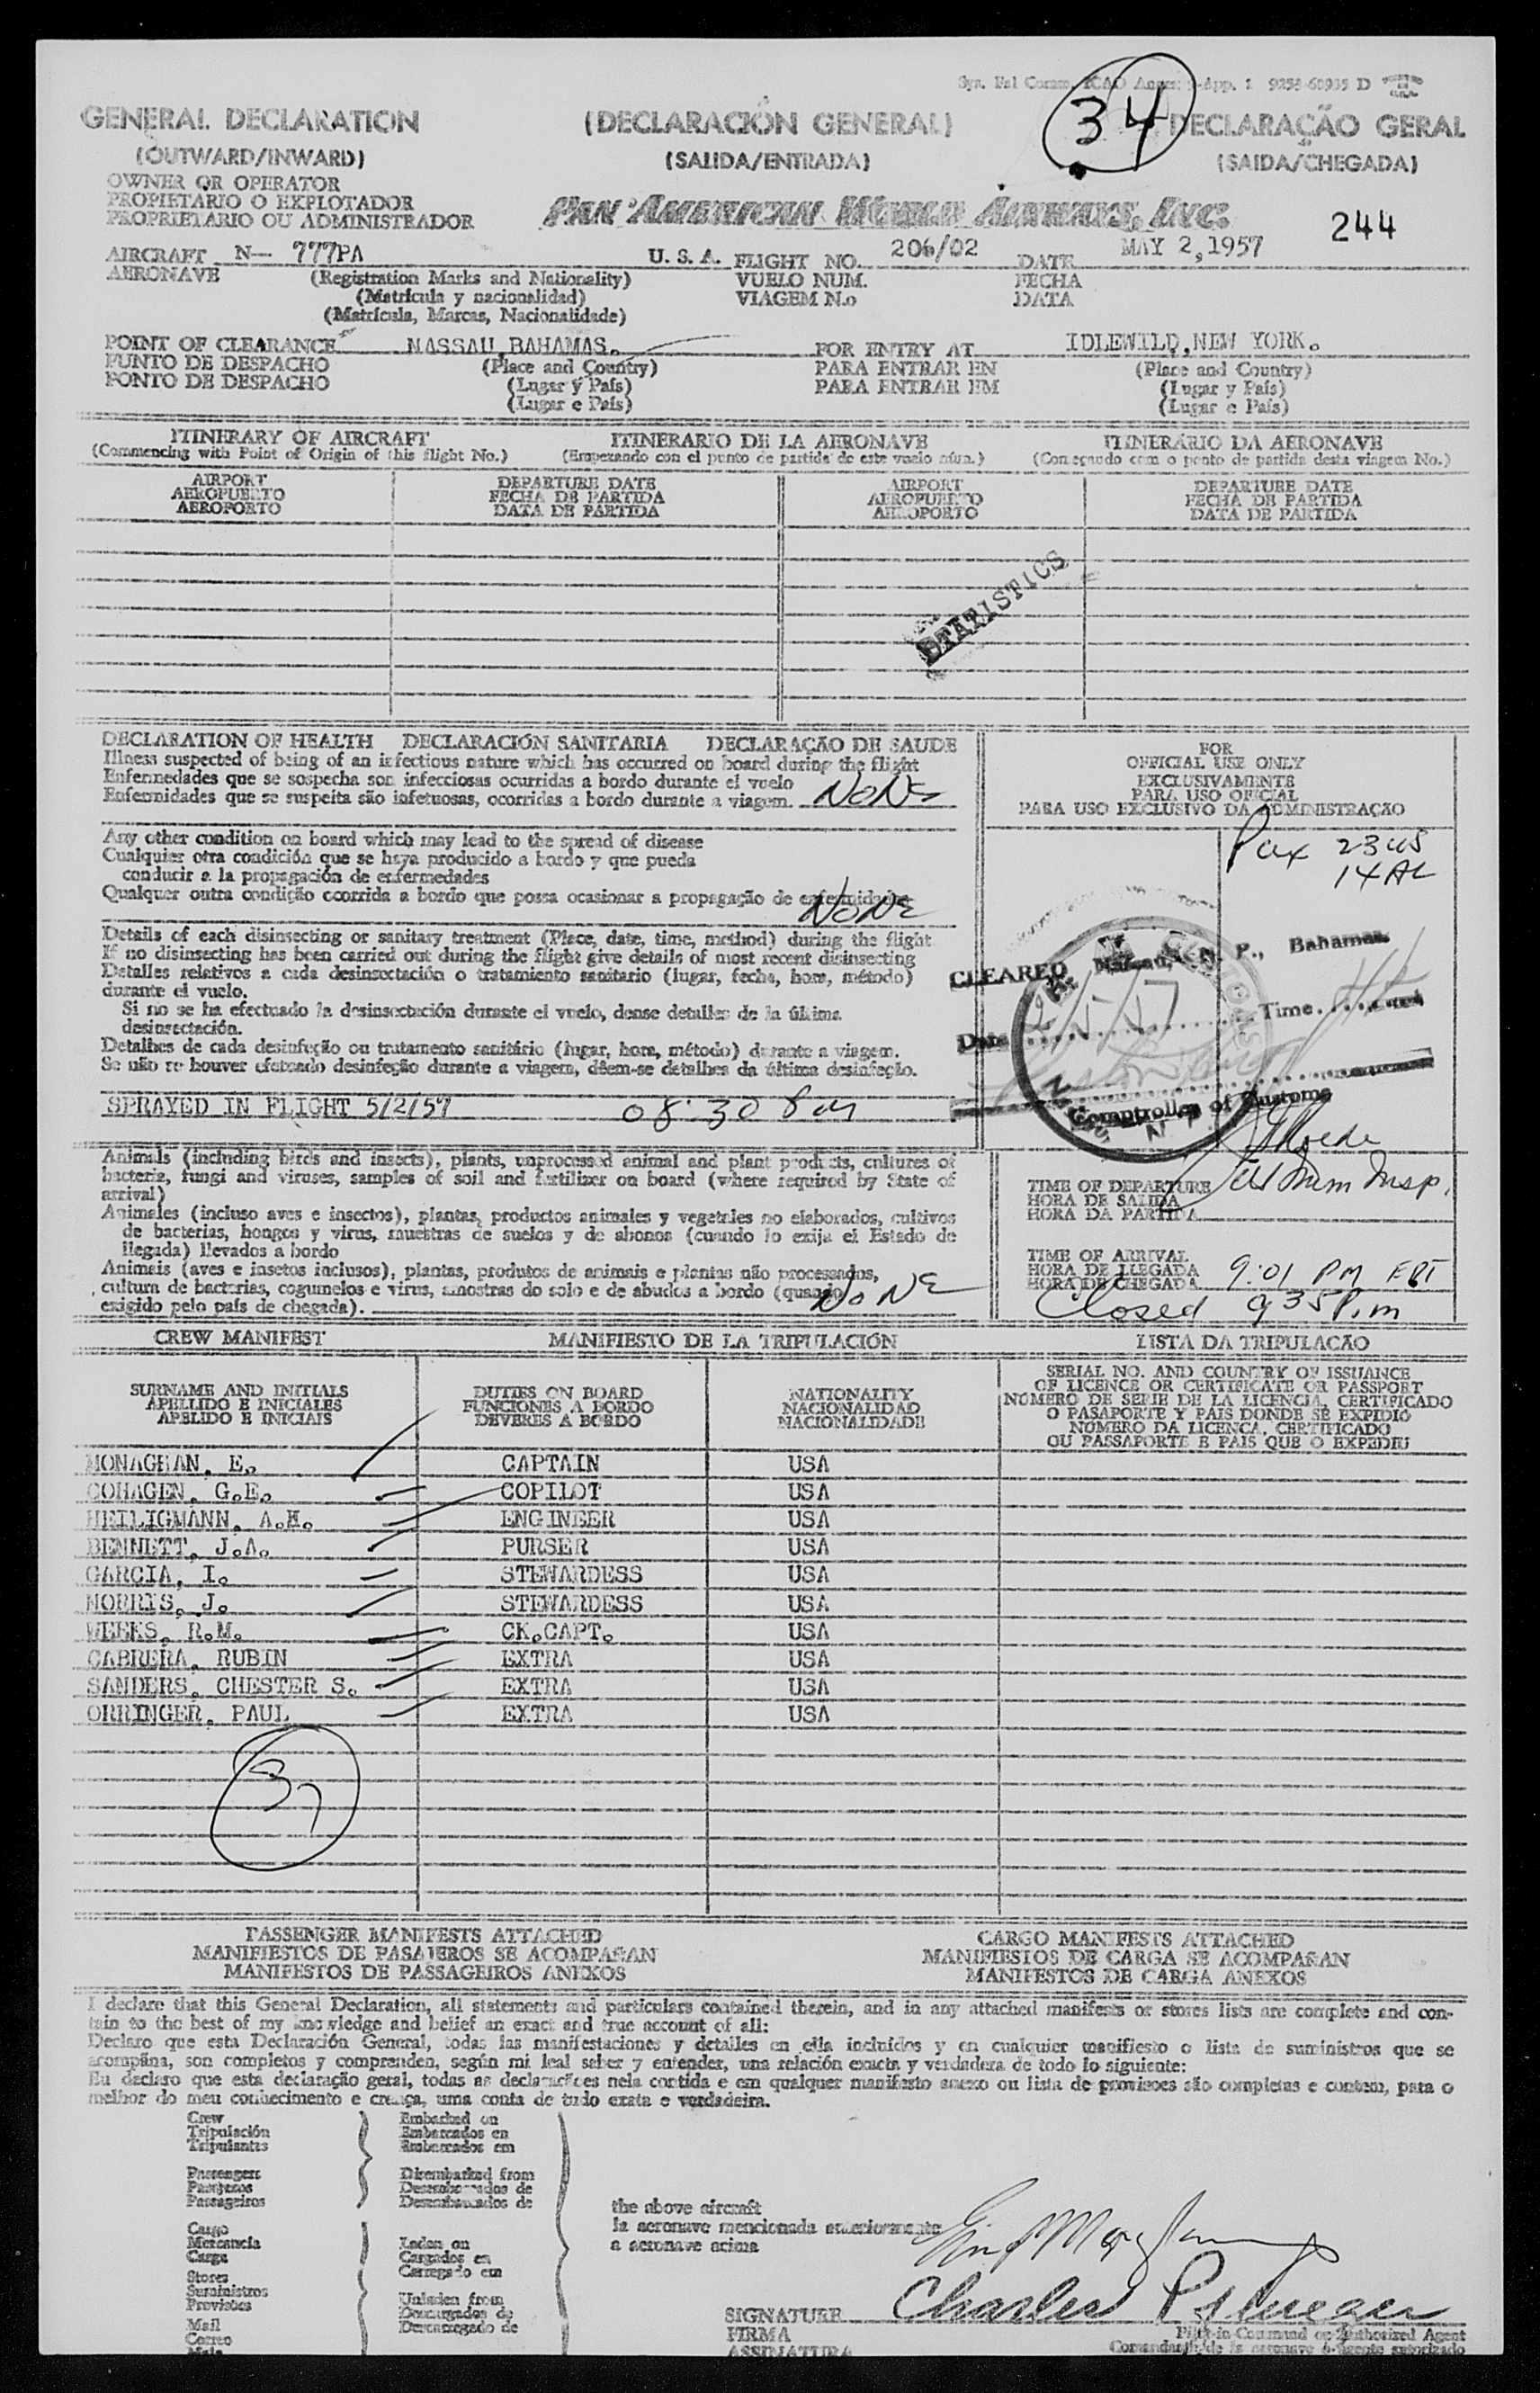 Sys. Fal Comm. ICAO Annex 9-App. 1 9256-60935 D
34
GENERAL DECLARATION (DECLARACIÓN GENERAL) DECLARAÇÃO GERAL
(OUTWARD/INWARD) (SALIDA/ENTRADA) (SAIDA/CHEGADA)
OWNER OR OPERATOR
PROPIETARIO O EXPLOTADOR
PROPRIETARIO OU ADMINISTRADOR
PAN AMERICAN WORLD AIRWAYS, INC.
244
AIRCRAFT N— 777PA U. S. A. FLIGHT NO. 206/02 DATE MAY 2,1957
AERONAVE (Registration Marks and Nationality) VUELO NUM. FECHA
(Matrícula y nacionalidad) VIAGEM N.o DATA
(Matrícula, Marcas, Nacionalidade)
POINT OF CLEARANCE NASSAU,BAHAMAS. FOR ENTRY AT IDLEWILD,NEW YORK.
PUNTO DE DESPACHO (Place and Country) PARA ENTRAR EN (Place and Country)
PONTO DE DESPACHO (Lugar y País) PARA ENTRAR EM (Lugar y País)
(Lugar e País) (Lugar e País)
ITINERARY OF AIRCRAFT ITINERARIO DE LA AERONAVE ITINERÁRIO DA AERONAVE
(Commencing with Point of Origin of this flight No.) (Empezando con el punto de partida de este vuelo núm.) (Começando com o ponto de partida desta viagem No.)
AIRPORT DEPARTURE DATE AIRPORT DEPARTURE DATE
AEROPUERTO FECHA DE PARTIDA AEROPUERTO FECHA DE PARTIDA
AEROPORTO DATA DE PARTIDA AEROPORTO DATA DE PARTIDA
STATISTICS
DECLARATION OF HEALTH DECLARACIÓN SANITARIA DECLARAÇÃO DE SAUDE
Illness suspected of being of an infectious nature which has occurred on board during the flight
Enfermedades que se sospecha son infecciosas ocurridas a bordo durante el vuelo
Enfermidades que se suspeita são infetuosas, ocorridas a bordo durante a viagem. NONE
Any other condition on board which may lead to the spread of disease
Cualquier otra condición que se haya producido a bordo y que pueda
conducir a la propagación de enfermedades
Qualquer outra condição ocorrida a bordo que possa ocasionar a propagação de enfermidades NONE
Details of each disinsecting or sanitary treatment (Place, date, time, method) during the flight
If no disinsecting has been carried out during the flight give details of most recent disinsecting
Detalles relativos a cada desinsectación o tratamiento sanitario (lugar, fecha, hora, método)
durante el vuelo.
Si no se ha efectuado la desinsectación durante el vuelo, dense detalles de la última
desinsectación.
Detalhes de cada desinfeção ou tratamento sanitário (lugar, hora, método) durante a viagem.
Se não re houver efetuado desinfeção durante a viagem, dêem-se detalhes da última desinfeção.
SPRAYED IN FLIGHT 5/2/57 08:30 Pm
Animals (including birds and insects), plants, unprocessed animal and plant products, cultures of
bacteria, fungi and viruses, samples of soil and fertilizer on board (where required by State of
arrival)
Animales (incluso aves e insectos), plantas, productos animales y vegetales no elaborados, cultivos
de bacterias, hongos y virus, muestras de suelos y de abonos (cuando lo exija el Estado de
llegada) llevados a bordo
Animais (aves e insetos inclusos), plantas, produtos de animais e plantas não processados,
cultura de bacterias, cogumelos e virus, amostras do solo e de abudos a bordo (quando
exigido pelo país de chegada). NONE
FOR
OFFICIAL USE ONLY
EXCLUSIVAMENTE
PARA USO OFICIAL
PARA USO EXCLUSIVO DA ADMINISTRAÇÃO
Pax 23 US
14 AL
CLEARED At Nassau, N. P., Bahamas
Date Time
Comptroller of Customs
US Imm Insp.
TIME OF DEPARTURE
HORA DE SALIDA
HORA DA PARTIDA
TIME OF ARRIVAL
HORA DE LLEGADA 9:01 PM EDT
HORA DE CHEGADA
Closed 9 35 P.m
CREW MANIFEST MANIFIESTO DE LA TRIPULACIÓN LISTA DA TRIPULACÃO
SURNAME AND INITIALS DUTIES ON BOARD NATIONALITY SERIAL NO. AND COUNTRY OF ISSUANCE
APELLIDO E INICIALES FUNCIONES A BORDO NACIONALIDAD OF LICENCE OR CERTIFICATE OR PASSPORT
APELIDO E INICIAIS DEVERES A BORDO NACIONALIDADE NÚMERO DE SERIE DE LA LICENCIA, CERTIFICADO
O PASAPORTE Y PAIS DONDE SE EXPIDIÓ
NÚMERO DA LICENCA, CERTIFICADO
OU PASSAPORTE E PAIS QUE O EXPEDIU
MONAGHAN, E. CAPTAIN USA
COHAGEN, G.E. COPILOT USA
HEILIGMANN, A.H. ENGINEER USA
BENNETT, J.A. PURSER USA
GARCIA, I. STEWARDESS USA
NORRIS, J. STEWARDESS USA
WEEKS, R.M. CK.CAPT. USA
CABRERA, RUBIN EXTRA USA
SANDERS, CHESTER S. EXTRA USA
ORRINGER, PAUL EXTRA USA
37
PASSENGER MANIFESTS ATTACHED CARGO MANIFESTS ATTACHED
MANIFIESTOS DE PASAJEROS SE ACOMPAÑAN MANIFIESTOS DE CARGA SE ACOMPAÑAN
MANIFESTOS DE PASSAGEIROS ANEXOS MANIFESTOS DE CARGA ANEXOS
I declare that this General Declaration, all statements and particulars contained therein, and in any attached manifests or stores lists are complete and con-
tain to the best of my knowledge and belief an exact and true account of all:
Declaro que esta Declaración General, todas las manifestaciones y detalles en ella incluidos y en cualquier manifiesto o lista de suministros que se
acompãna, son completos y comprenden, según mi leal saber y entender, una relación exacta y verdadera de todo lo siguiente:
Eu declaro que esta declaração geral, todas as declarações nela contida e em qualquer manifesto anexo ou lista de provisoes são completas e contem, para o
melhor do meu conhecimento e crença, uma conta de tudo exata e verdadeira.
Crew Embarked on
Tripulación Embarcados en
Tripulantes Embarcados em
Passengers Disembarked from
Pasajeros Desembarcados de
Passageiros Desembarcados de
the above aircraft
la aeronave mencionada anteriormente
a aeronave acima
Cargo
Mercancia Laden on
Carga Cargados en
Carregado em
Stores
Suministros
Provistos Unladen from
Descargados de
Mail Descarregado de
Correo
Mala
SIGNATURE Charles Pflueger
FIRMA Pilot-in-Command or Authorized Agent
ASSINATURA Comandante de la aeronave o Agente autorizado